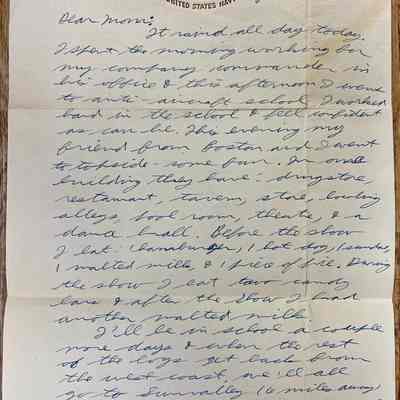 UNITED STATES NAV
Dear Mom:
It rained all day today.
I spent the morning working for
my company commander in
his office & this afternoon I went
to anti-aircraft school. I worked
hard in the school & feel confident
as can be. This evening my
friend from Boston and I went
to topside - some fun. In one
building they have: drugstore,
restaurant, tavern, store, bowling
alleys, pool room, theatre, & a
dance hall. Before the show
I eat: 1 hamburger, 1 hot dog, 1 sundae,
1 malted milk, & 1 piece of pie. During
the show I eat two candy
bars & after the show I had
another malted milk.
I'll be in school a couple
more days & when the rest
of the boys get back from
the west coast, we'll all
go to Sunvalley (6 miles away)